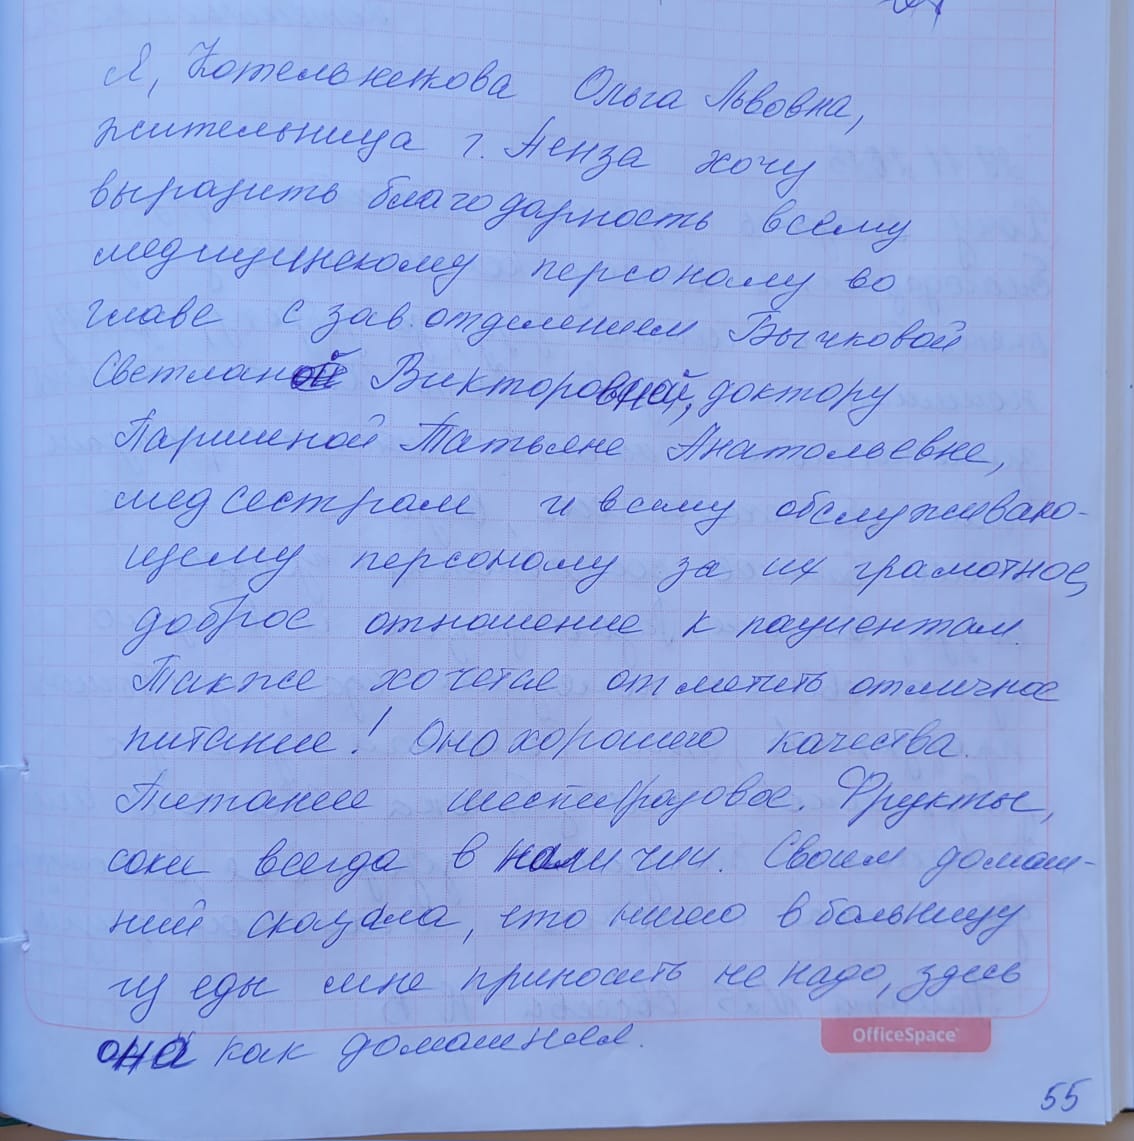 Я, Котельникова Ольга Львовна,
жительница г. Пенза хочу
выразить благодарность всему
медицинскому персоналу во
главе с зав. отделением Бычковой
Светланой Викторовной, доктору
Паршиной Татьяне Анатольевне,
медсестрам и всему обслуживаю-
щему персоналу за их грамотное,
доброе отношение к пациентам.
Также хочется отметить отличное
питание! Оно хорошего качества.
Питание шестиразовое. Фрукты,
соки всегда в наличии. Своим домаш-
ний сказала, что ничего в больницу
из еды мне приносить не надо, здесь
она как домашняя.
OfficeSpace
55